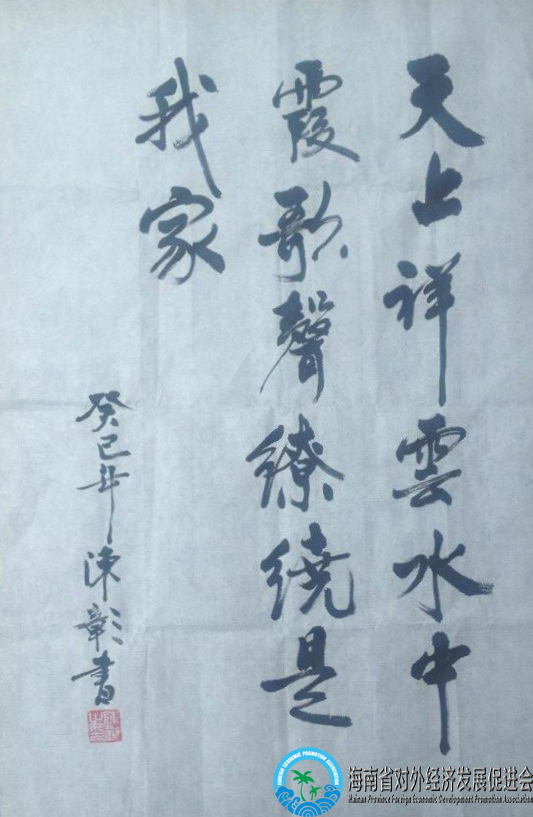 天上祥雲水中
霞歌聲繚繞是
我家
癸巳年陳彰書
海南省对外经济发展促进会
Hainan Province Foreign Economic Development Promotion Association